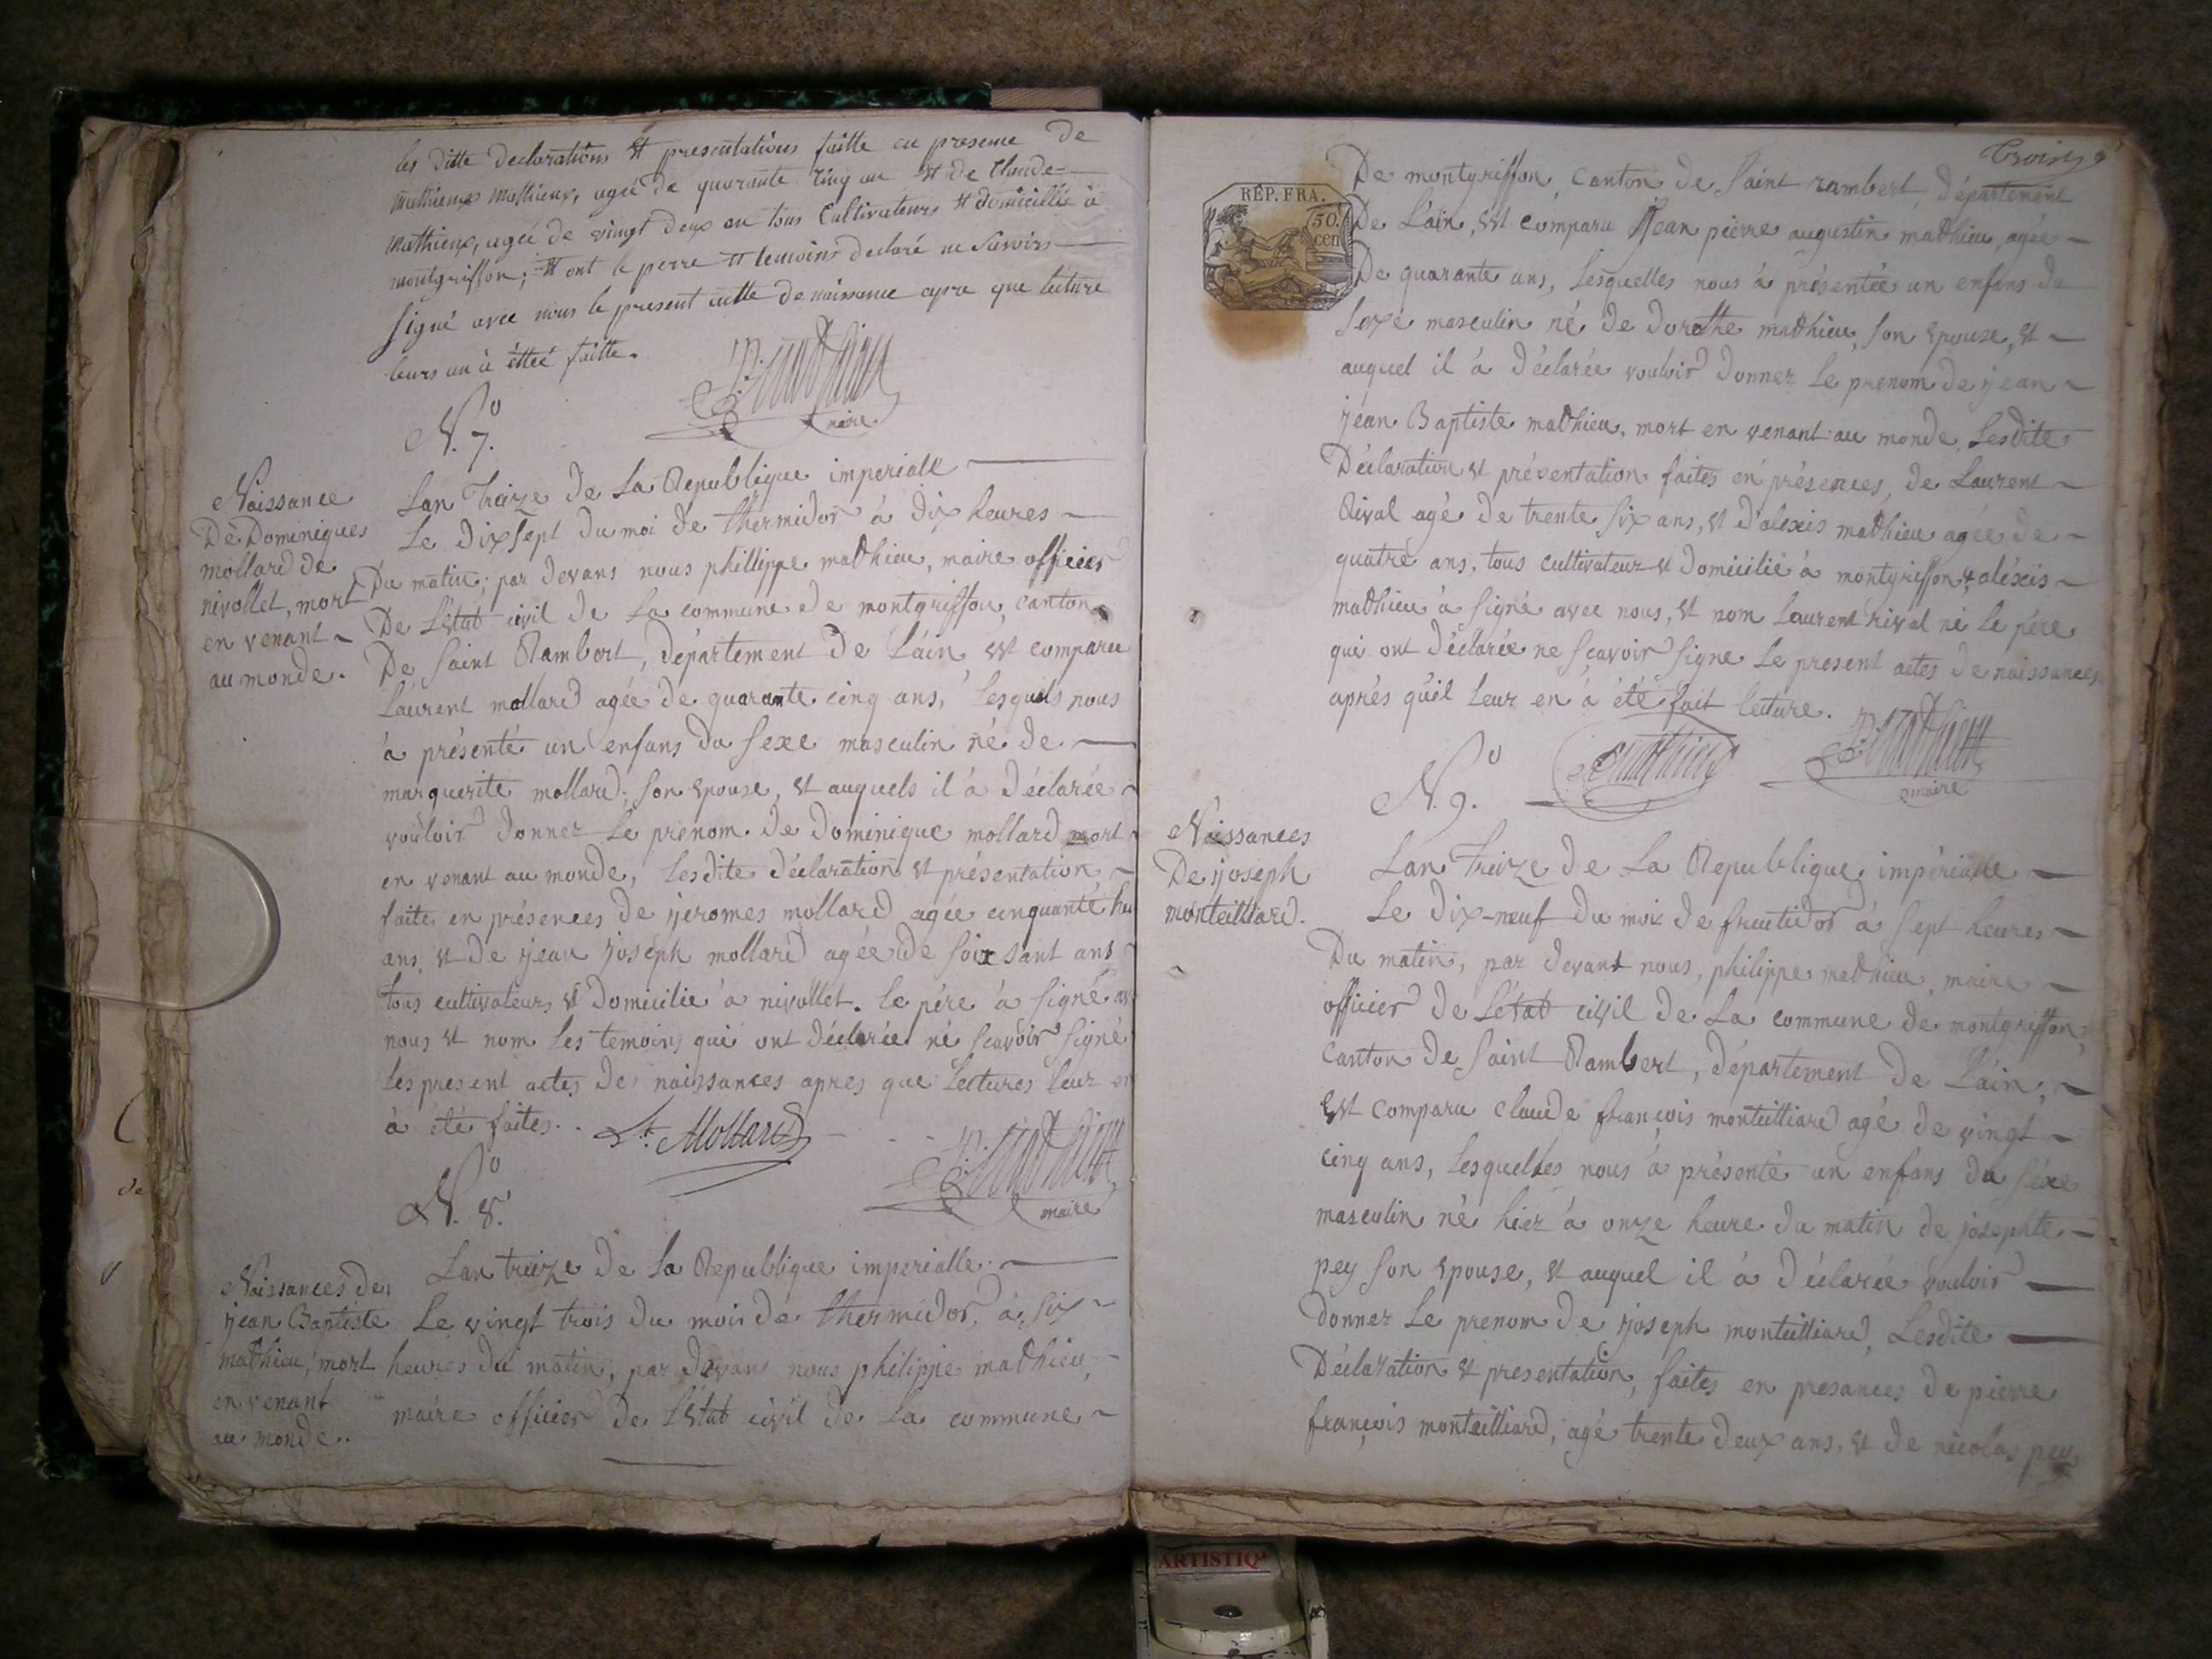 les ditte declarations et presentations faitte en presence de
mathieux mathieux, ageé de quarante cinq an et de Claude
mathieux, ageé de vingt deux an tous Cultivateurs et domicillié à
montgriffon; et ont le perre et temoins declaré ne savoirs
signé avec nous le present actte de naissance apre que lecture
leurs an à étteé faitte.
P. mathieu
maire
N.o 7.
Naissance
De Dominiques
mollard de
nivollet, mort
en venant
au monde.
Lan Treize de La Republique imperiall
Le dix sept du moi de thermidor à dix heures
Du matin; par devans nous phillippe mathieu, maire officier
De L'etat civil de La commune de montgriffon, canton
De Saint Rambert, département De L'ain, est comparu
Laurent mollard agée de quarante cinq ans, Lesquels nous
à présenté un enfans du sexe masculin né de
marguerite mollard, son epouse, et auquels il à déclarée
vouloir donner Le prenom de Dominique mollard mort
en venant au monde, Lesdite déclaration et présentation
faites en présences de jeromes mollard agée cinquante hu
ans, et de jean joseph mollard agée de soixsant ans
tous cultivateurs et domicilié à nivollet. Le pére à signé av
nous et nom Les temoins qui ont déclarée né scavoir signé
Les present actes de naissances apres que Lectures leur en
à été faites.
Lt. Mollard
P. mathieu
maire
N.o 8.
Naissances de
jean Baptiste
mathieu, mort
en venant
au monde.
Lan treize de La Republique imperialle.
Le vingt trois du mois de thermidor, à six
heures du matin, par devans nous philippe mathieu,
maire officier de L'etat civil de La commune
troisy
REP. FRA.
50.
cen
De montgriffon, canton de saint rambert, département
De L'ain, est comparu jean piérre augustin mathieu, agée
De quarante ans, Lesquelles nous à présentée un enfans de
sexe masculin né de dorothe mathieu, son epouse, et
auquel il à déclarée vouloir donner Le prenom de jean
jean Baptiste mathieu, mort en venant au monde, Lesdite
Déclaration et présentation faites en présences, de Laurent
Rival agé de trente six ans, et d'alexis mathieu agée de
quatre ans, tous cultivateur et domicilié à montgriffon, et aléxis
mathieu à signé avec nous, et nom Laurent rival ni Le pére
qui ont déclarée ne scavoir signe Le present actes de naissances
aprés qu'il Leur en à été fait lecture.
mathieu
P. mathieu
maire
N.o 9.
Naissances
De joseph
monteilliard.
Lan treize de La Republique impérialle
Le dix-neuf du moix de fructidor à sept heures
Du matin, par devant nous, philippe mathieu, maire
officier de L'état civil de La commune de montgriffon,
canton de saint Rambert, département de L'ain;
Est comparu claude françois monteilliard agé de vingt
cinq ans, Lesquelles nous à présenté un enfans du séxe
masculin né hier à onze heure du matin de josephte
pey son epouse, et auquel il à déclarée vouloir
donner Le prenom De joseph monteilliard, Lesdite
Déclaration et presentation, faites en presances de pierre
françois monteilliard, agé trente deux ans, et de nicolas pey
ARTISTIQ